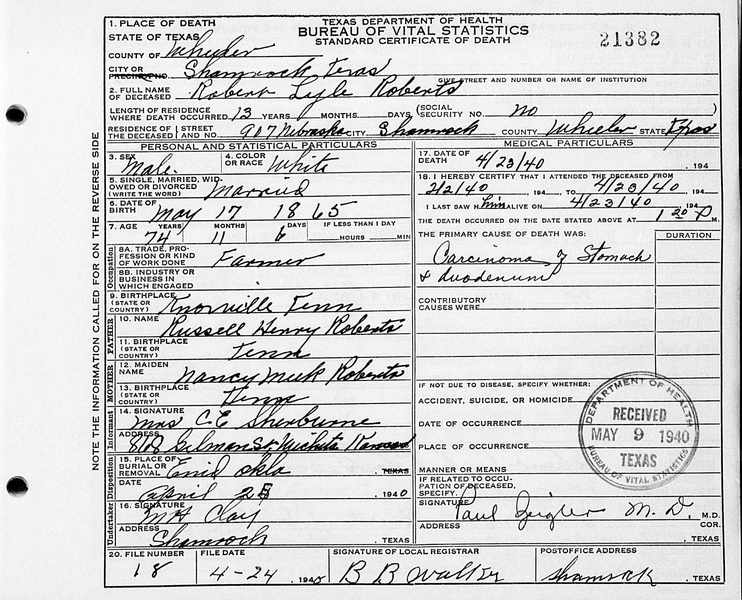 TEXAS DEPARTMENT OF HEALTH
BUREAU OF VITAL STATISTICS
STANDARD CERTIFICATE OF DEATH
21382
NOTE THE INFORMATION CALLED FOR ON THE REVERSE SIDE
1. PLACE OF DEATH
STATE OF TEXAS
COUNTY OF Wheeler
CITY OR PRECINCT NO. Shamrock Texas
GIVE STREET AND NUMBER OR NAME OF INSTITUTION
2. FULL NAME OF DECEASED Robert Lyle Roberts
LENGTH OF RESIDENCE WHERE DEATH OCCURRED 13 YEARS MONTHS DAYS (SOCIAL SECURITY NO. no
RESIDENCE OF THE DECEASED STREET AND NO. 907 Nebraska CITY Shamrock COUNTY Wheeler STATE Texas
PERSONAL AND STATISTICAL PARTICULARS
3. SEX Male
4. COLOR OR RACE White
5. SINGLE, MARRIED, WIDOWED OR DIVORCED (WRITE THE WORD) Married
6. DATE OF BIRTH May 17 1865
7. AGE YEARS 74 MONTHS 11 DAYS 6 IF LESS THAN 1 DAY HOURS MIN
Occupation
8A. TRADE, PROFESSION OR KIND OF WORK DONE Farmer
8B. INDUSTRY OR BUSINESS IN WHICH ENGAGED
9. BIRTHPLACE (STATE OR COUNTRY) Knoxville Tenn
FATHER
10. NAME Russell Henry Roberts
11. BIRTHPLACE (STATE OR COUNTRY) Tenn
MOTHER
12. MAIDEN NAME Nancy Roberts
13. BIRTHPLACE (STATE OR COUNTRY) Tenn
Informant
14. SIGNATURE Mrs C.E. Sherburne
ADDRESS Gilman St. Wichita Kansas
Disposition
15. PLACE OF BURIAL OR REMOVAL Enid Okla TEXAS
DATE April 25 1940
Undertaker
16. SIGNATURE MH Clay
ADDRESS Shamrock , TEXAS
MEDICAL PARTICULARS
17. DATE OF DEATH 4/23/40 , 194
18. I HEREBY CERTIFY THAT I ATTENDED THE DECEASED FROM
2/2/40 194 TO 4/23/40 , 194
I LAST SAW him ALIVE ON 4/23/40 194
THE DEATH OCCURRED ON THE DATE STATED ABOVE AT 1 20 P M.
THE PRIMARY CAUSE OF DEATH WAS: DURATION
Carcinoma of Stomach
& duodenum
CONTRIBUTORY CAUSES WERE:
IF NOT DUE TO DISEASE, SPECIFY WHETHER:
ACCIDENT, SUICIDE, OR HOMICIDE
DATE OF OCCURRENCE
PLACE OF OCCURRENCE
MANNER OR MEANS
IF RELATED TO OCCUPATION OF DECEASED, SPECIFY.
SIGNATURE Paul Zeigler M.D. M.D.
ADDRESS COR.
, TEXAS
DEPARTMENT OF HEALTH
RECEIVED
MAY 9 1940
TEXAS
BUREAU OF VITAL STATISTICS
20. FILE NUMBER 18
FILE DATE 4-24 , 1940
SIGNATURE OF LOCAL REGISTRAR B B Walker
POSTOFFICE ADDRESS Shamrock , TEXAS